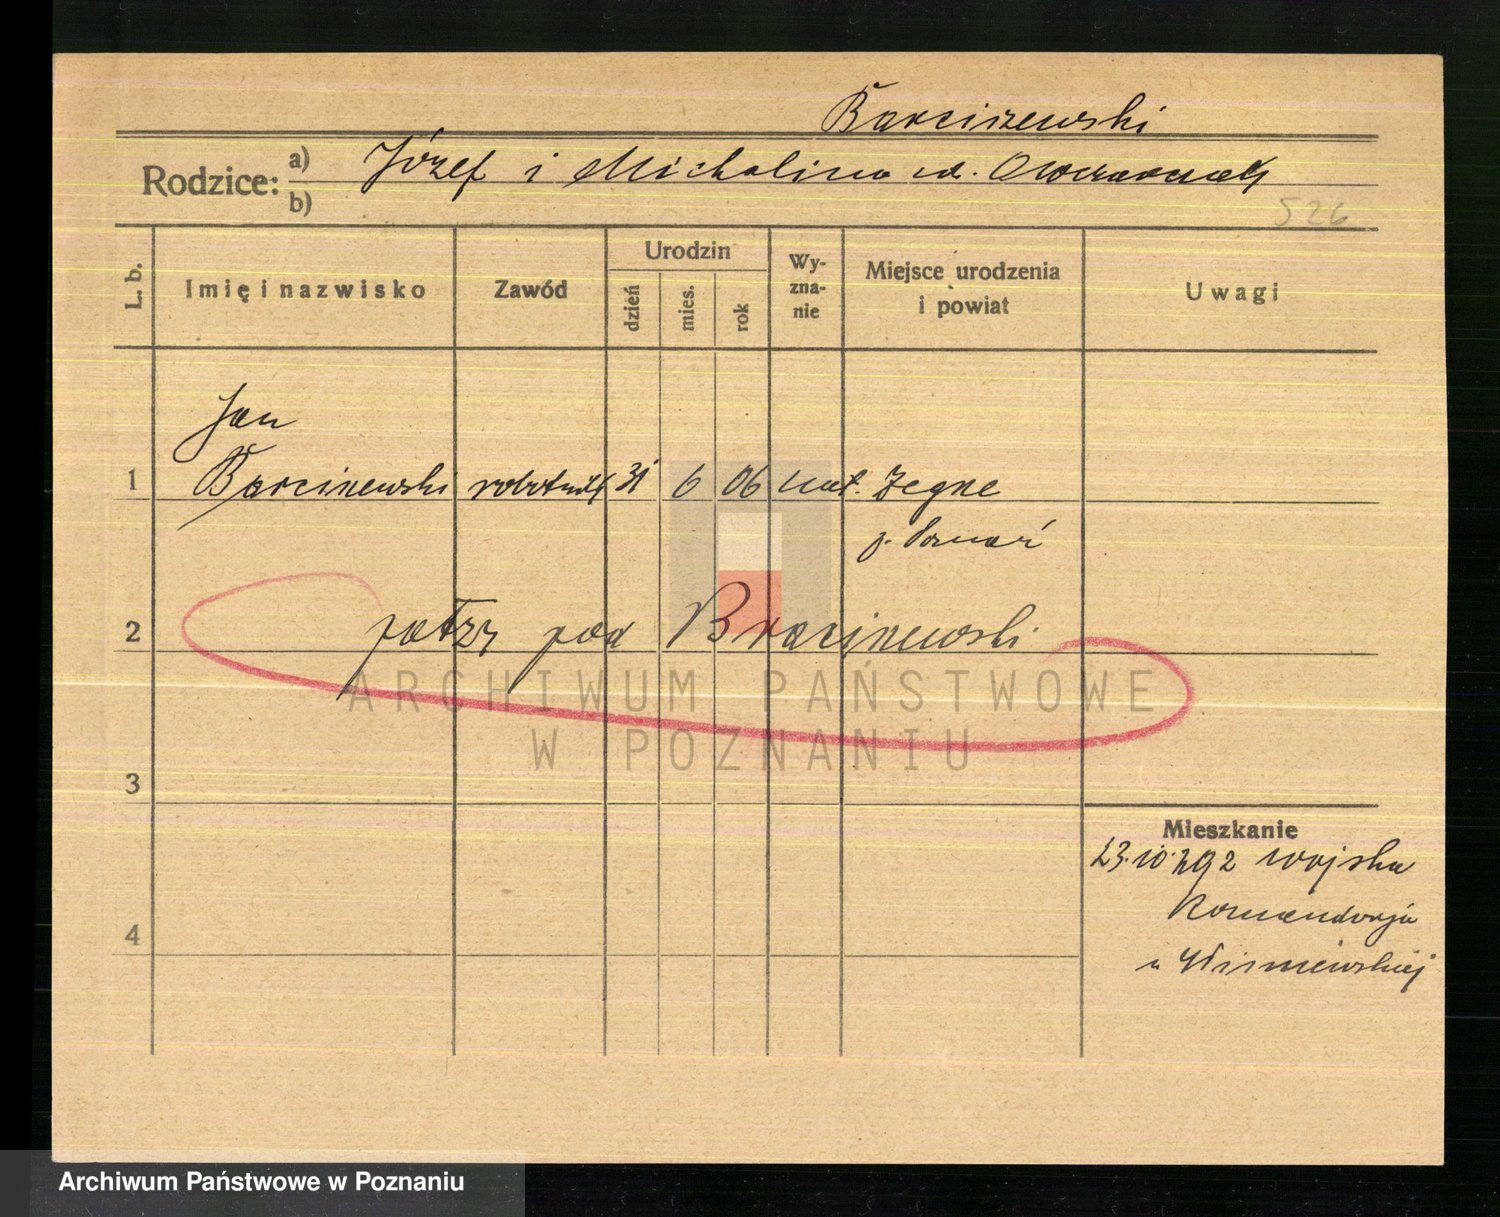 Barciszewski
Rodzice: a) b) Józef i Michalina ud. Owczarczak
526
L. b. Imię i nazwisko Zawód Urodzin dzień mies. rok Wy-zna-nie Miejsce urodzenia i powiat Uwagi
Jan
1 Barciszewski robotnik 31 6 06 kat. Żegrze
p. Poznań
2 patrz pod Braciszewski
ARCHIWUM PAŃSTWOWE
W POZNANIU
3
Mieszkanie
23.10. 292 wojska
4 Komandorja
u Wiśniewskiej
Archiwum Państwowe w Poznaniu